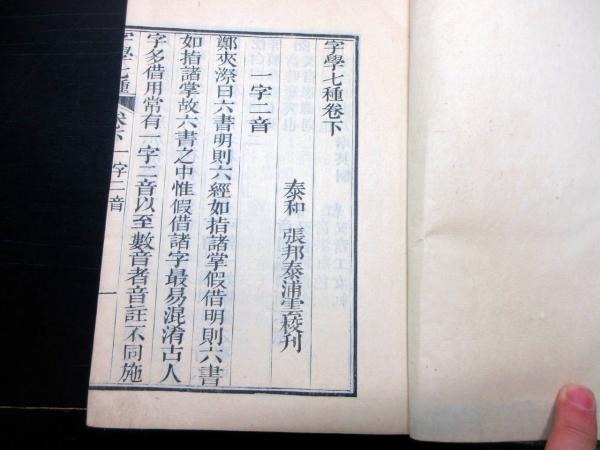 字學七種卷下
泰和 張邦泰浦雲校刊
一字二音
鄭夾漈曰六書明則六經如指諸掌假借明則六書
如指諸掌故六書之中惟假借諸字最易混淆古人
字多借用常有一字二音以至數音者音註不同施
字學七種 卷下 一字二音 一